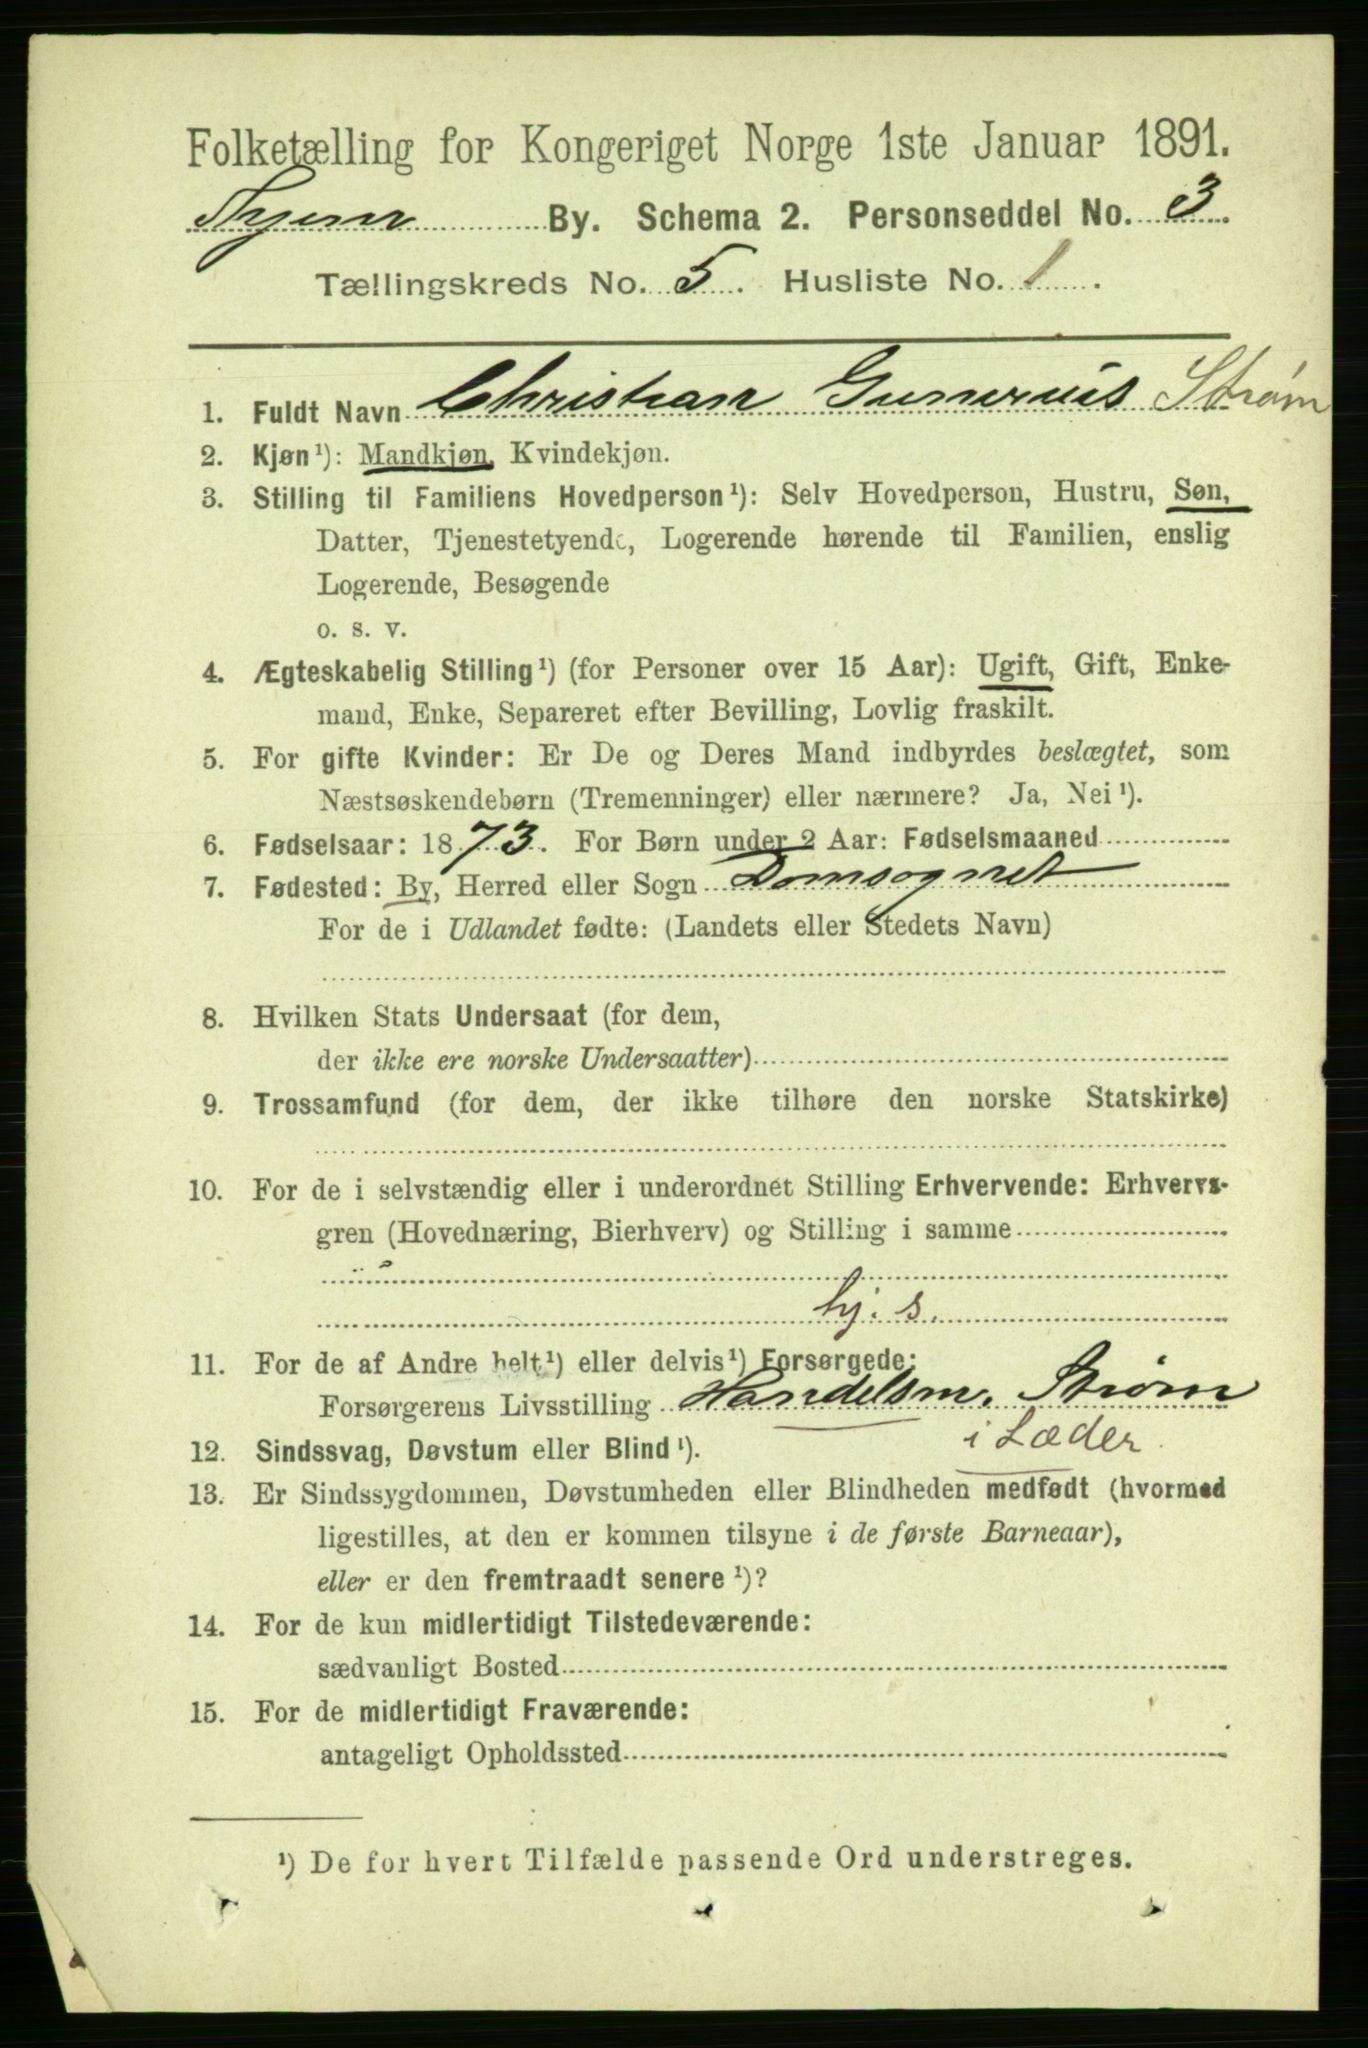 Folketælling for Kongeriget Norge 1ste Januar 1891.
By. Schema 2. Personseddel No. 3.
Tællingskreds No. 5. Husliste No. 1.
1. Fuldt Navn Christian Gunerius Strøm
2. Kjøn ¹): Mandkjøn, Kvindekjøn.
3. Stilling til Familiens Hovedperson ¹): Selv Hovedperson, Hustru, Søn,
Datter, Tjenestetyende, Logerende hørende til Familien, enslig
Logerende, Besøgende
o. s. v.
4. Ægteskabelig Stilling ¹) (for Personer over 15 Aar): Ugift, Gift, Enke-
mand, Enke, Separeret efter Bevilling, Lovlig fraskilt.
5. For gifte Kvinder: Er De og Deres Mand indbyrdes beslægtet, som
Næstsøskendebørn (Tremenninger) eller nærmere? Ja, Nei ¹).
6. Fødselsaar: 1873. For Børn under 2 Aar: Fødselsmaaned
7. Fødested: By, Herred eller Sogn Domsognet
For de i Udlandet fødte: (Landets eller Stedets Navn)
8. Hvilken Stats Undersaat (for dem,
der ikke ere norske Undersaatter)
9. Trossamfund (for dem, der ikke tilhøre den norske Statskirke)
10. For de i selvstændig eller i underordnet Stilling Erhvervende: Erhvervs-
gren (Hovednæring, Bierhverv) og Stilling i samme
hj. s.
11. For de af Andre helt ¹) eller delvis ¹) Forsørgede:
Forsørgerens Livsstilling Handelsm. Strøm
i Læder
12. Sindssvag, Døvstum eller Blind ¹).
13. Er Sindssygdommen, Døvstumheden eller Blindheden medfødt (hvormed
ligestilles, at den er kommen tilsyne i de første Barneaar),
eller er den fremtraadt senere ¹)?
14. For de kun midlertidigt Tilstedeværende:
sædvanligt Bosted
15. For de midlertidigt Fraværende:
antageligt Opholdssted
¹) De for hvert Tilfælde passende Ord understreges.